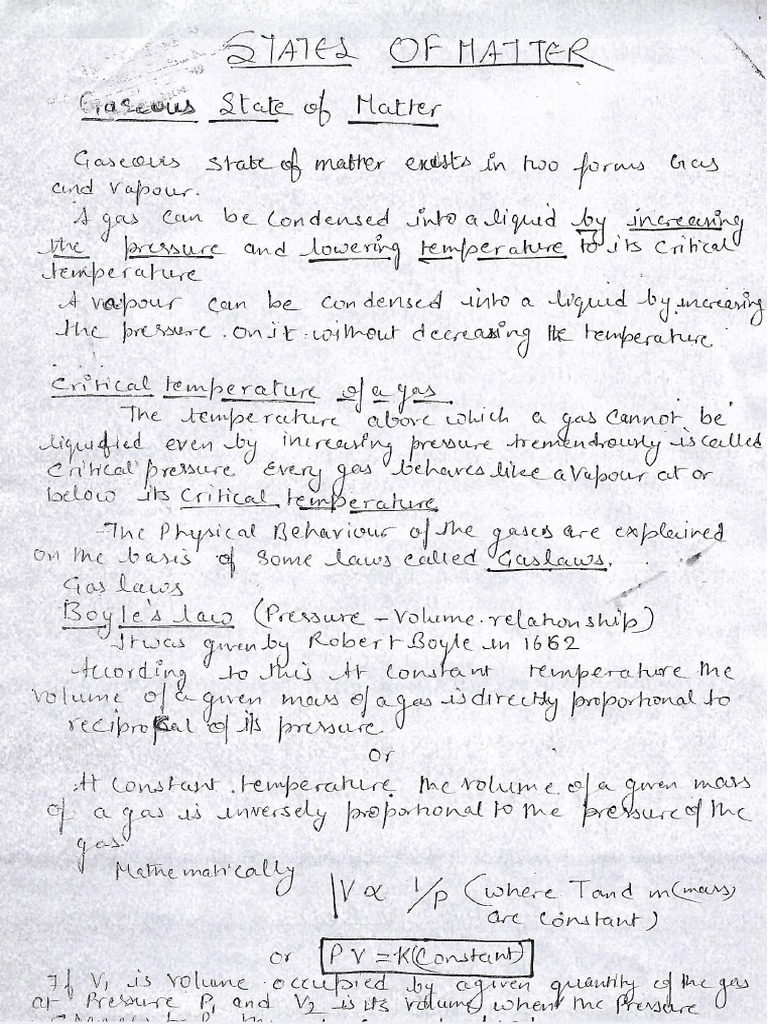 STATES OF MATTER
Gaseous State of Matter
Gaseous State of matter exists in two forms Gas
and vapour.
A gas can be condensed into a liquid by increasing
the pressure and lowering temperature to its critical
temperature
A vapour can be condensed into a liquid by increasing
the pressure on it without decreasing the temperature
Critical temperature of a gas
The temperature above which a gas cannot be
liquified even by increasing pressure tremendrously is called
critical pressure Every gas behaves like a vapour at or
below its critical temperature
The Physical Behaviour of the gases are explained
on the basis of some laws called Gaslaws.
Gas laws
Boyle's law (Pressure - Volume relationship)
It was given by Robert Boyle in 1662
According to this At constant temperature the
volume of a given mass of a gas is directly proportional to
reciprocal of its pressure
Or
At constant temperature the volume of a given mass
of a gas is inversely proportional to the pressure of the
gas.
Mathematically
V ∝ 1/P (where T and m(mass)
are constant)
or PV = K(Constant)
If V1 is volume occupied by a given quantity of the gas
at Pressure P1 and V2 is its volume when the Pressure